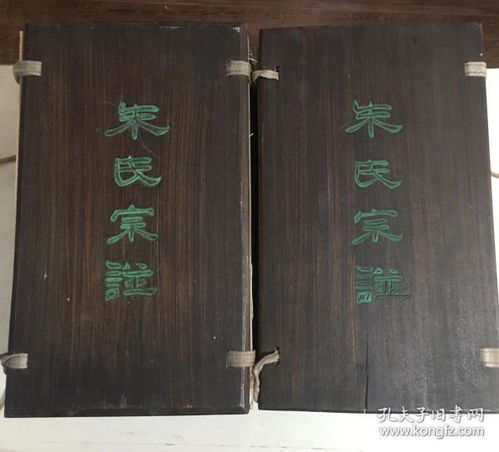 朱氏宗諩
朱氏宗諩
孔夫子旧书网
www.kongfz.com